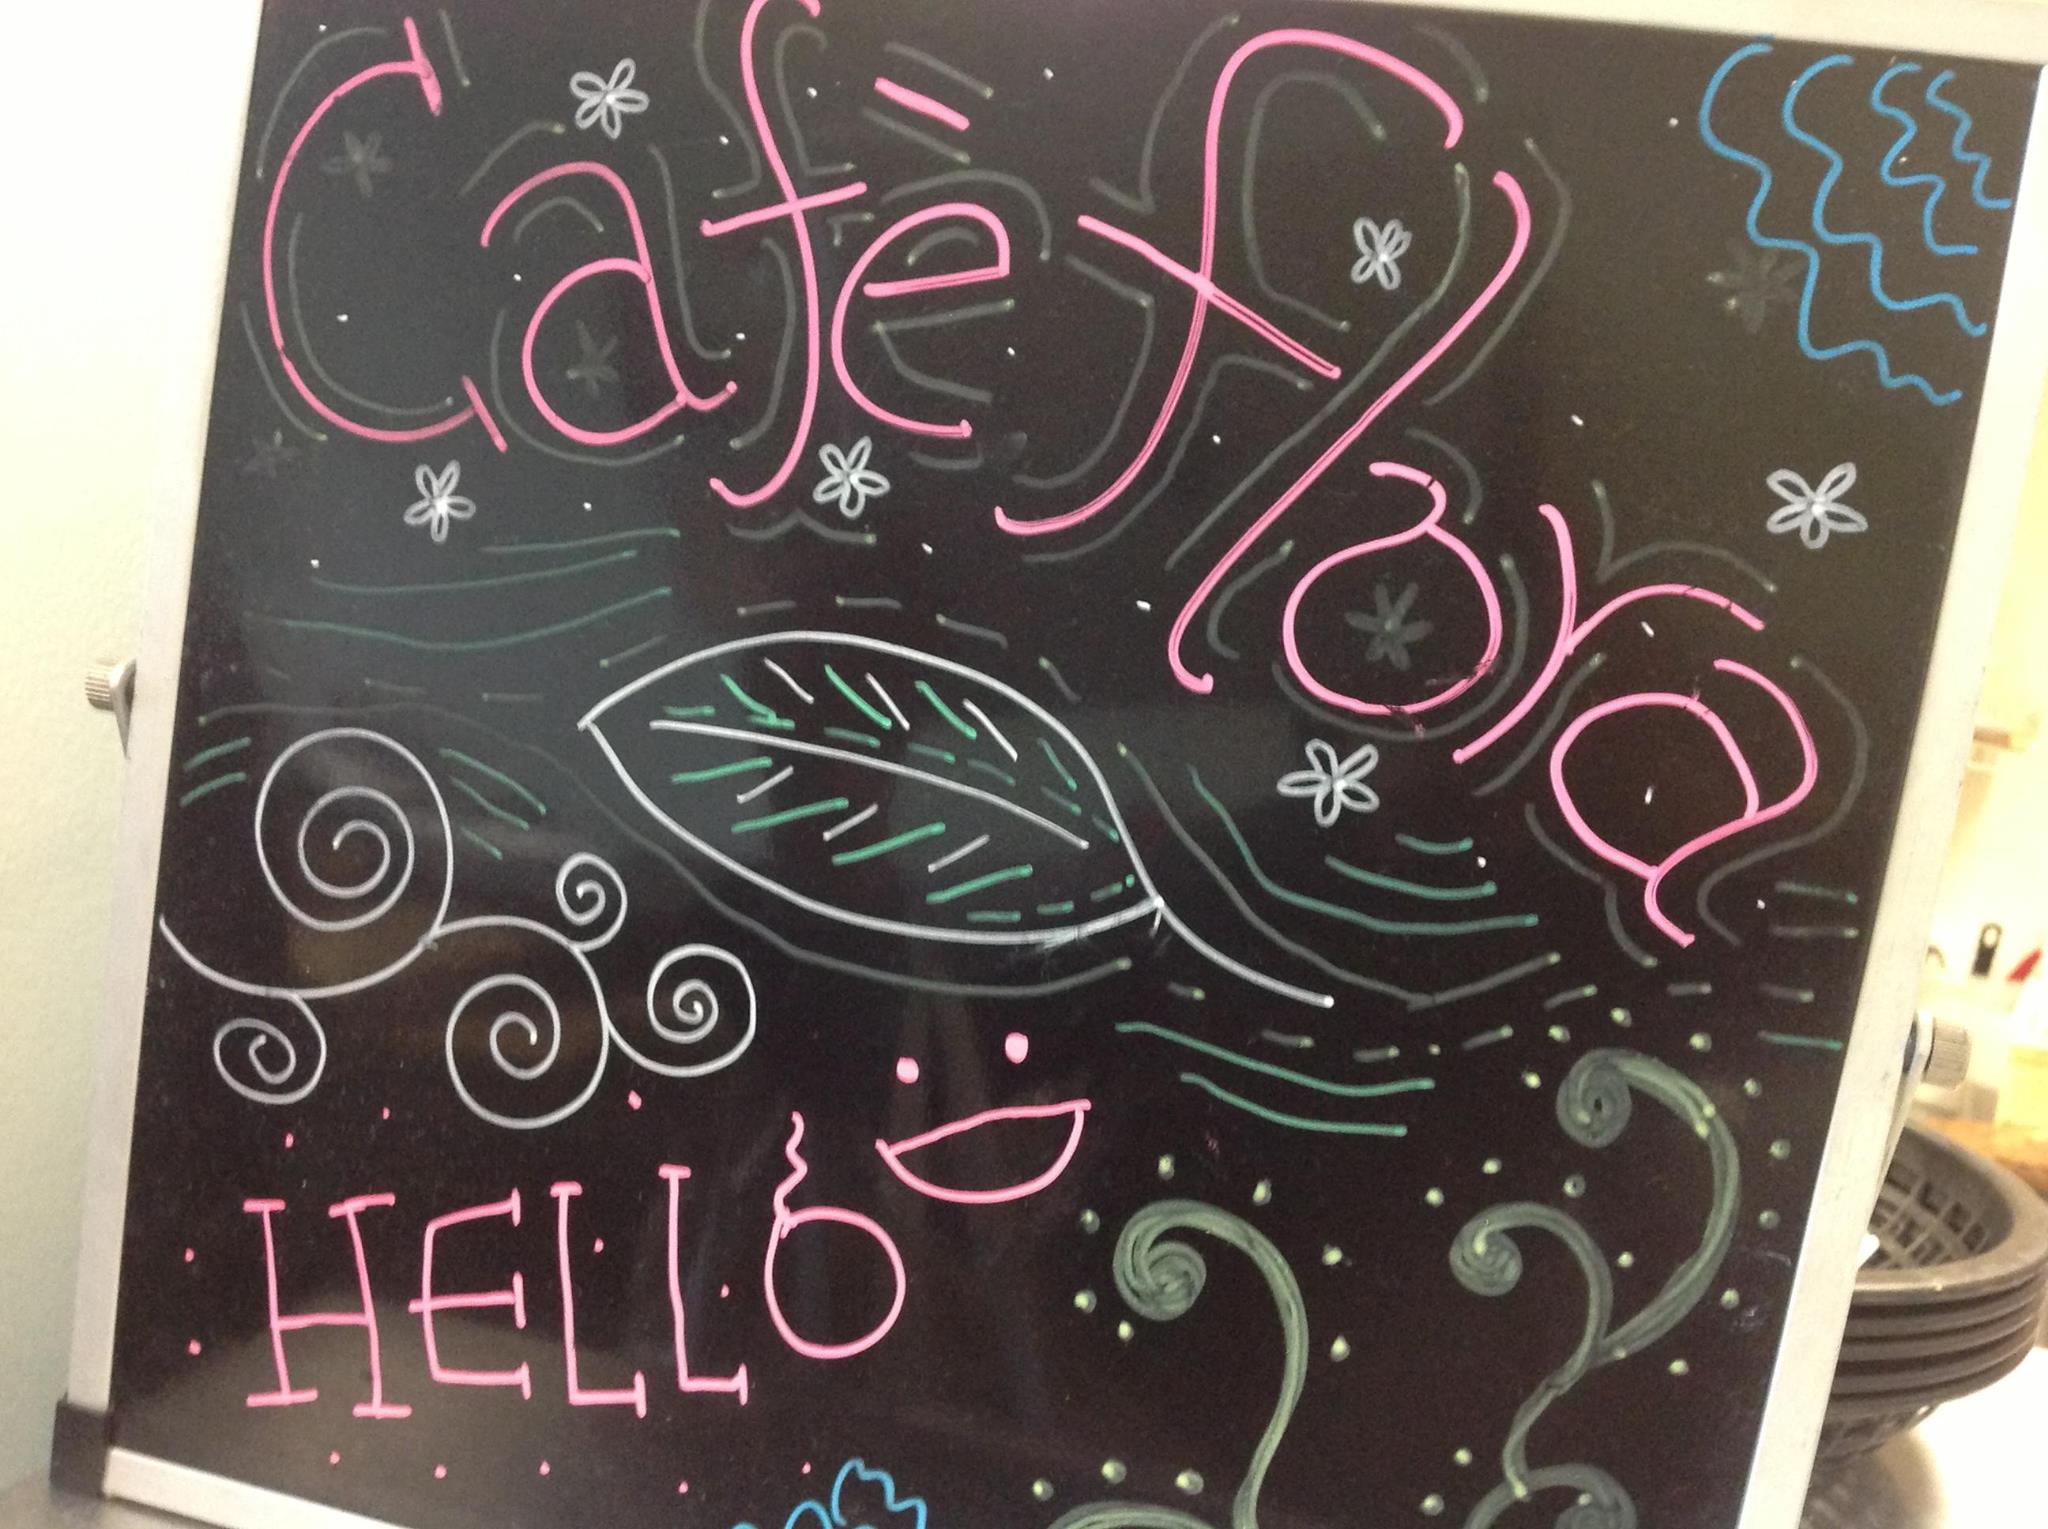 Café flora
HELLO